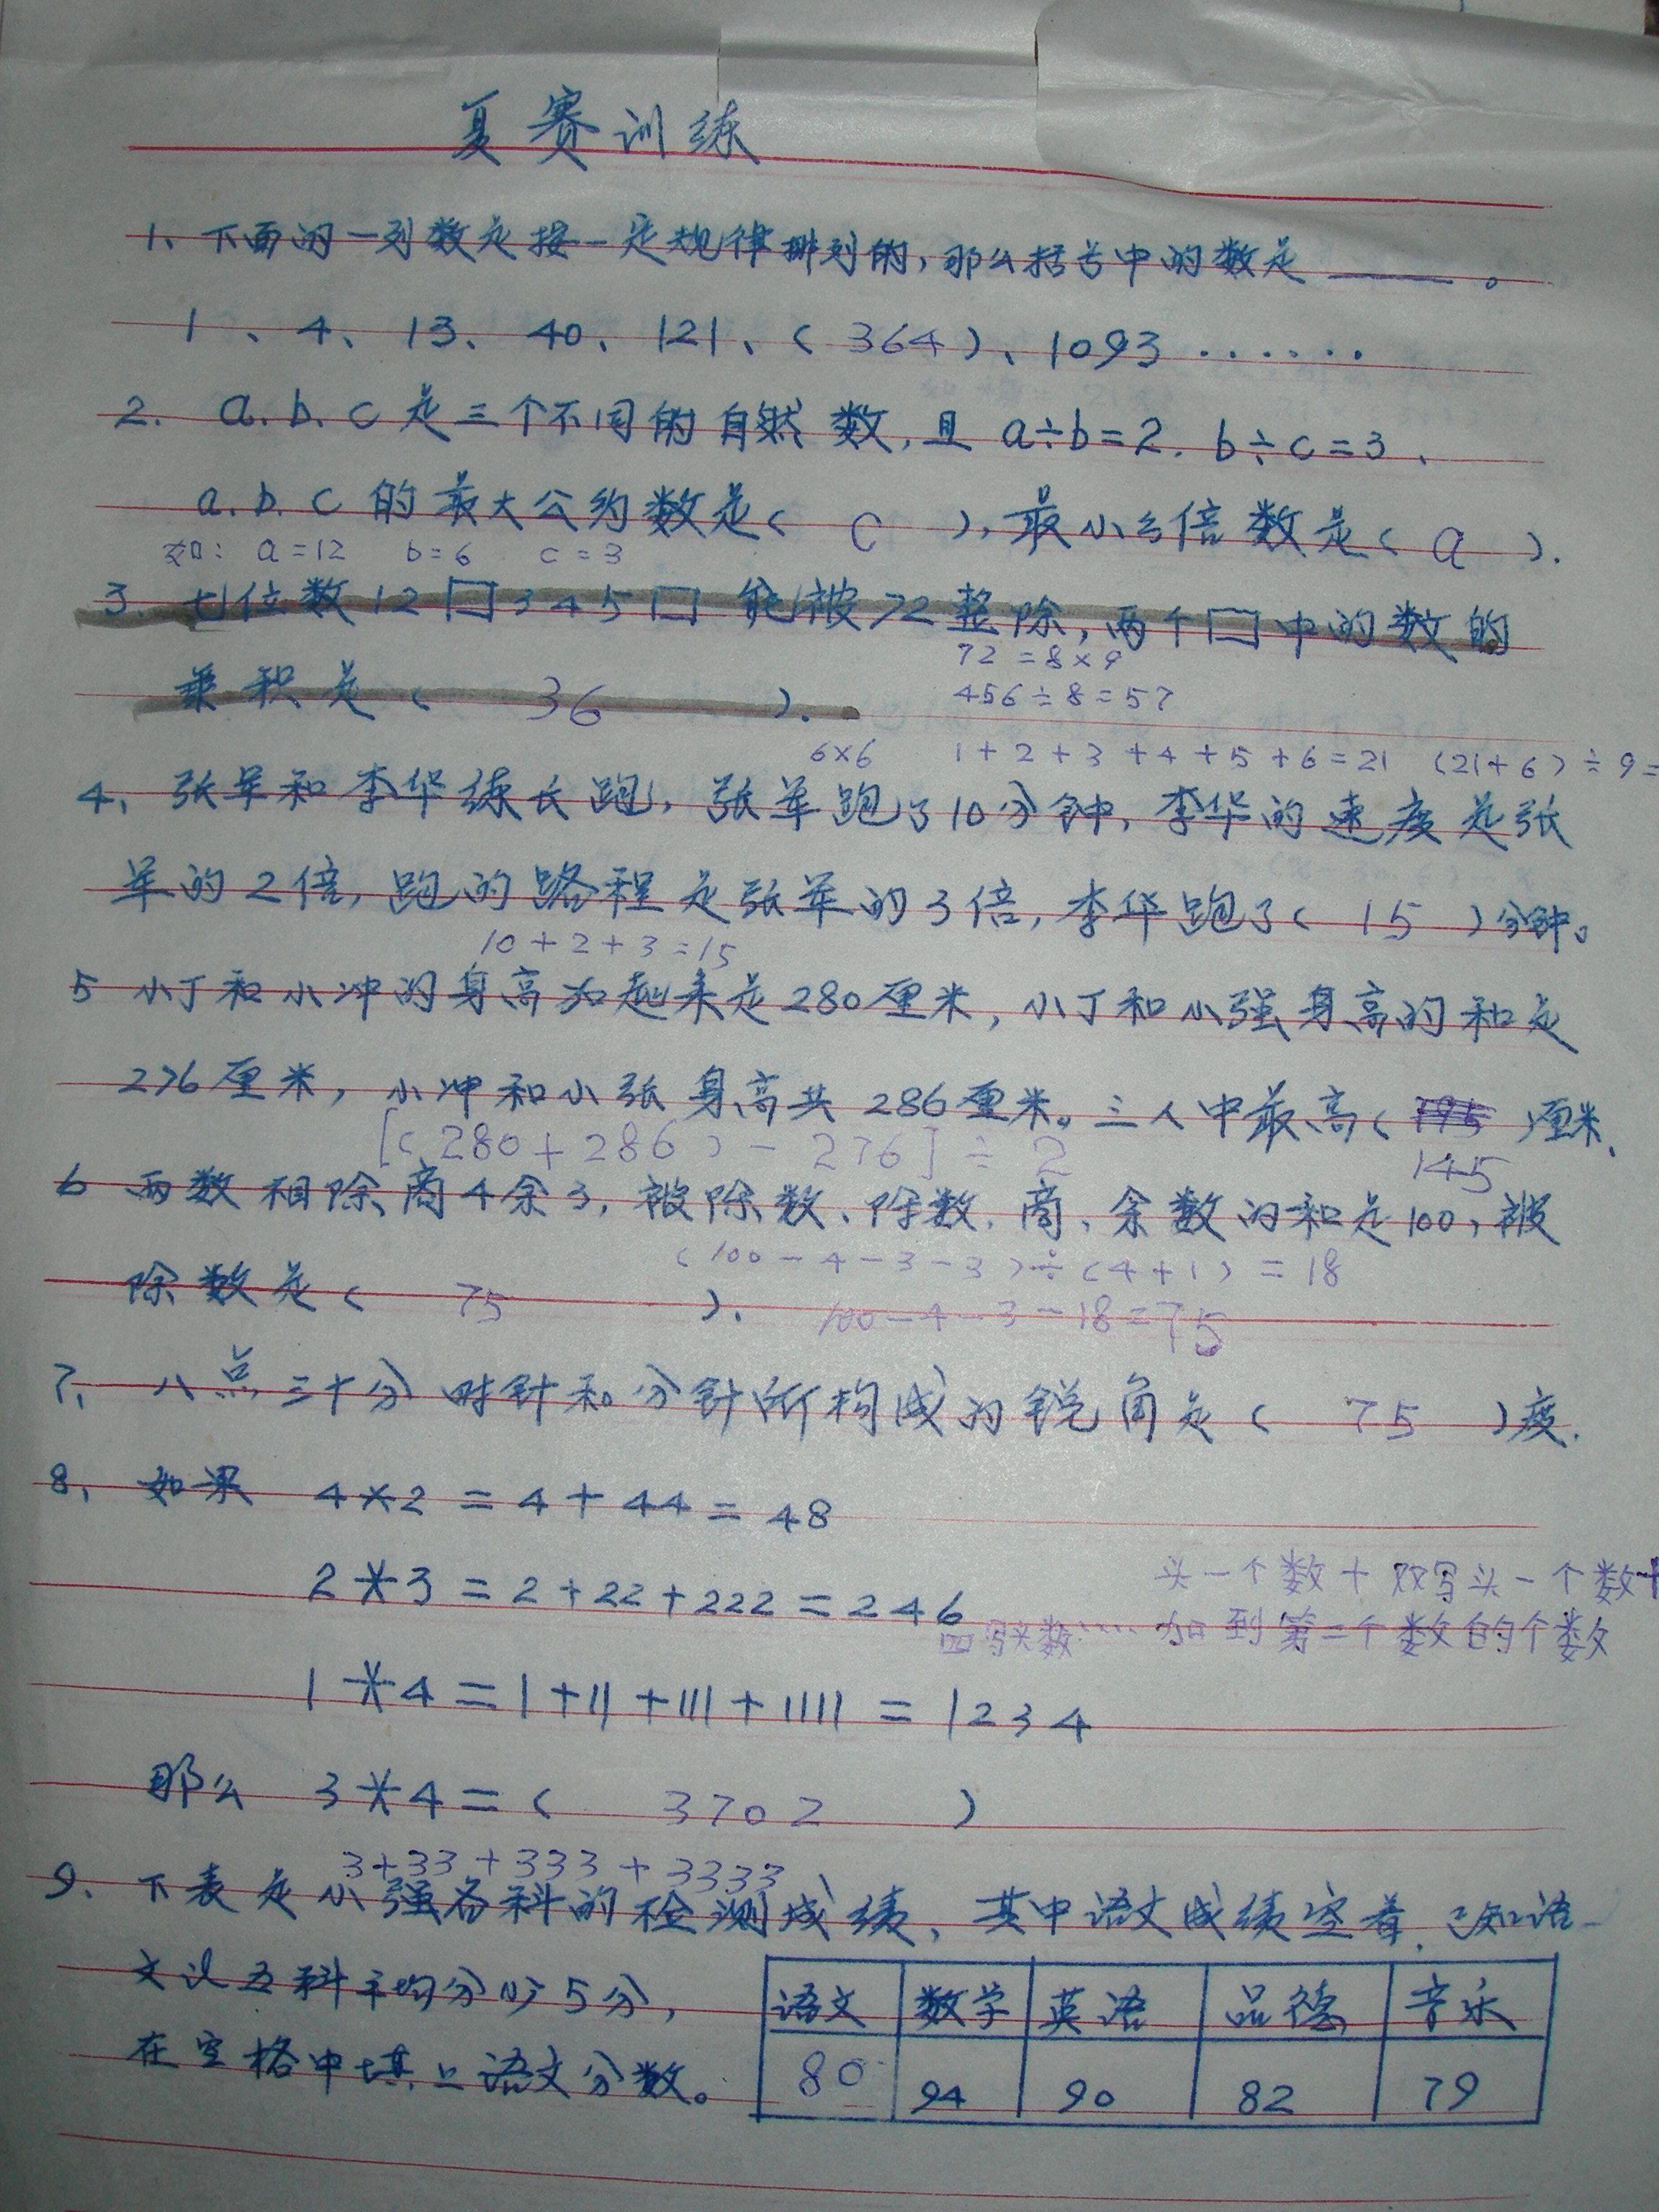 复赛训练
1、下面的一列数是按一定规律排列的,那么括号中的数是 ____ 。
1、4、13、40、121、(364)、1093……
2. a.b.c是三个不同的自然数,且a÷b=2.b÷c=3、
a.b.c的最大公约数是(c),最小公倍数是(a).
如: a=12 b=6 c=3
3. 七位数12□345□能被72整除,两个□中的数的
72=8×9
乘积是( 36 ).
456÷8=57
6×6 1+2+3+4+5+6=21 (21+6)÷9=
4、张军和李华练长跑,张军跑了10分钟,李华的速度是张
军的2倍,跑的路程是张军的3倍,李华跑了(15)分钟。
10÷2×3=15
5 小丁和小冲的身高加起来是280厘米,小丁和小强身高的和是
276厘米,小冲和小张身高共286厘米。三人中最高( )厘米.
[(280+286)-276]÷2 145
6 两数相除商4余3,被除数、除数.商、余数的和是100,被
(100-4-3-3)÷(4+1)=18
除数是( 75 ).
100-4-3-18=75
7、八点三十分时针和分针所构成的锐角是(75)度.
8、如果 4*2=4+44=48
2*3=2+22+222=246
头一个数+双写头一个数+
四写头数……加到第二个数的个数
1*4=1+11+111+1111=1234
那么 3*4=( 3702 )
3+33+333+3333
9、下表是小强各科的检测成绩、其中语文成绩空着.已知语
文比五科平均分少5分,
在空格中填上语文分数。
语文 数学 英语 品德 音乐
80 94 90 82 79